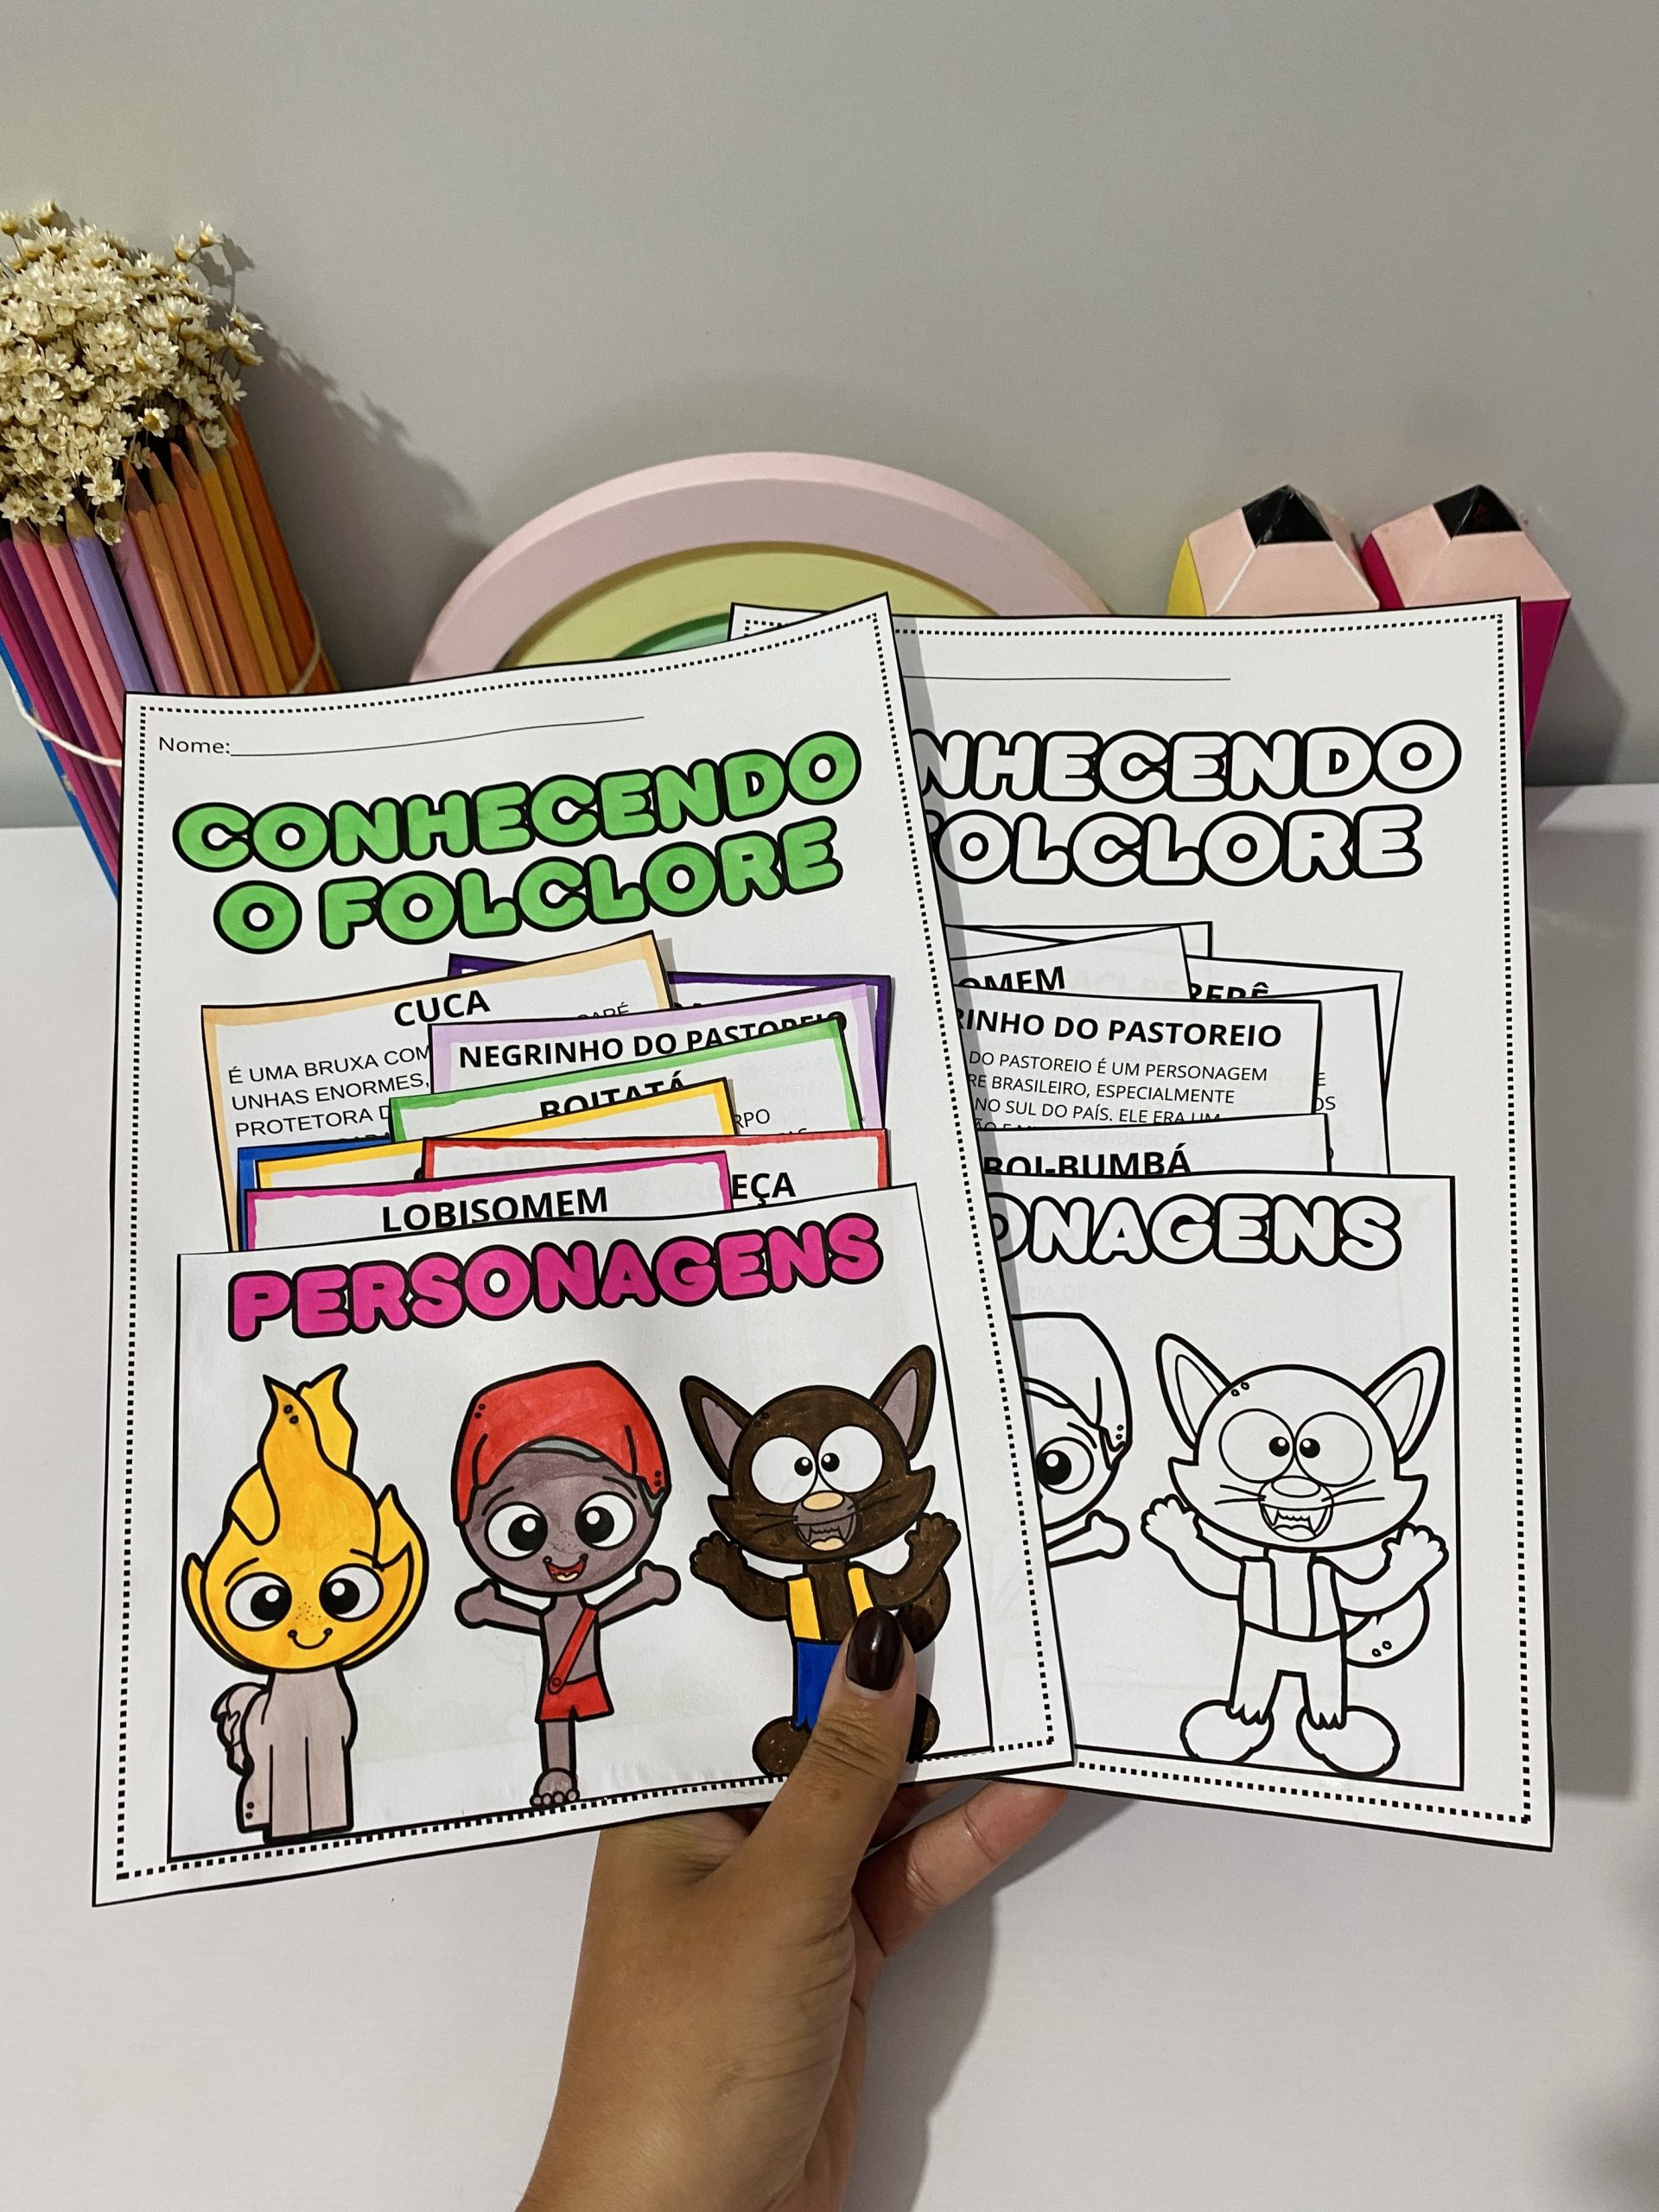 Nome:
CONHECENDO
O FOLCLORE
CUCA
É UMA BRUXA COM
UNHAS ENORMES,
PROTETORA
NEGRINHO DO PASTOREIO
BOITATÁ
LOBISOMEM
PERSONAGENS
NHECENDO
FOLCLORE
OMEM
RERÊ
RINHO DO PASTOREIO
DO PASTOREIO É UM PERSONAGEM
RE BRASILEIRO, ESPECIALMENTE
NO SUL DO PAÍS. ELE ERA UM
BOI-BUMBÁ
ONAGENS